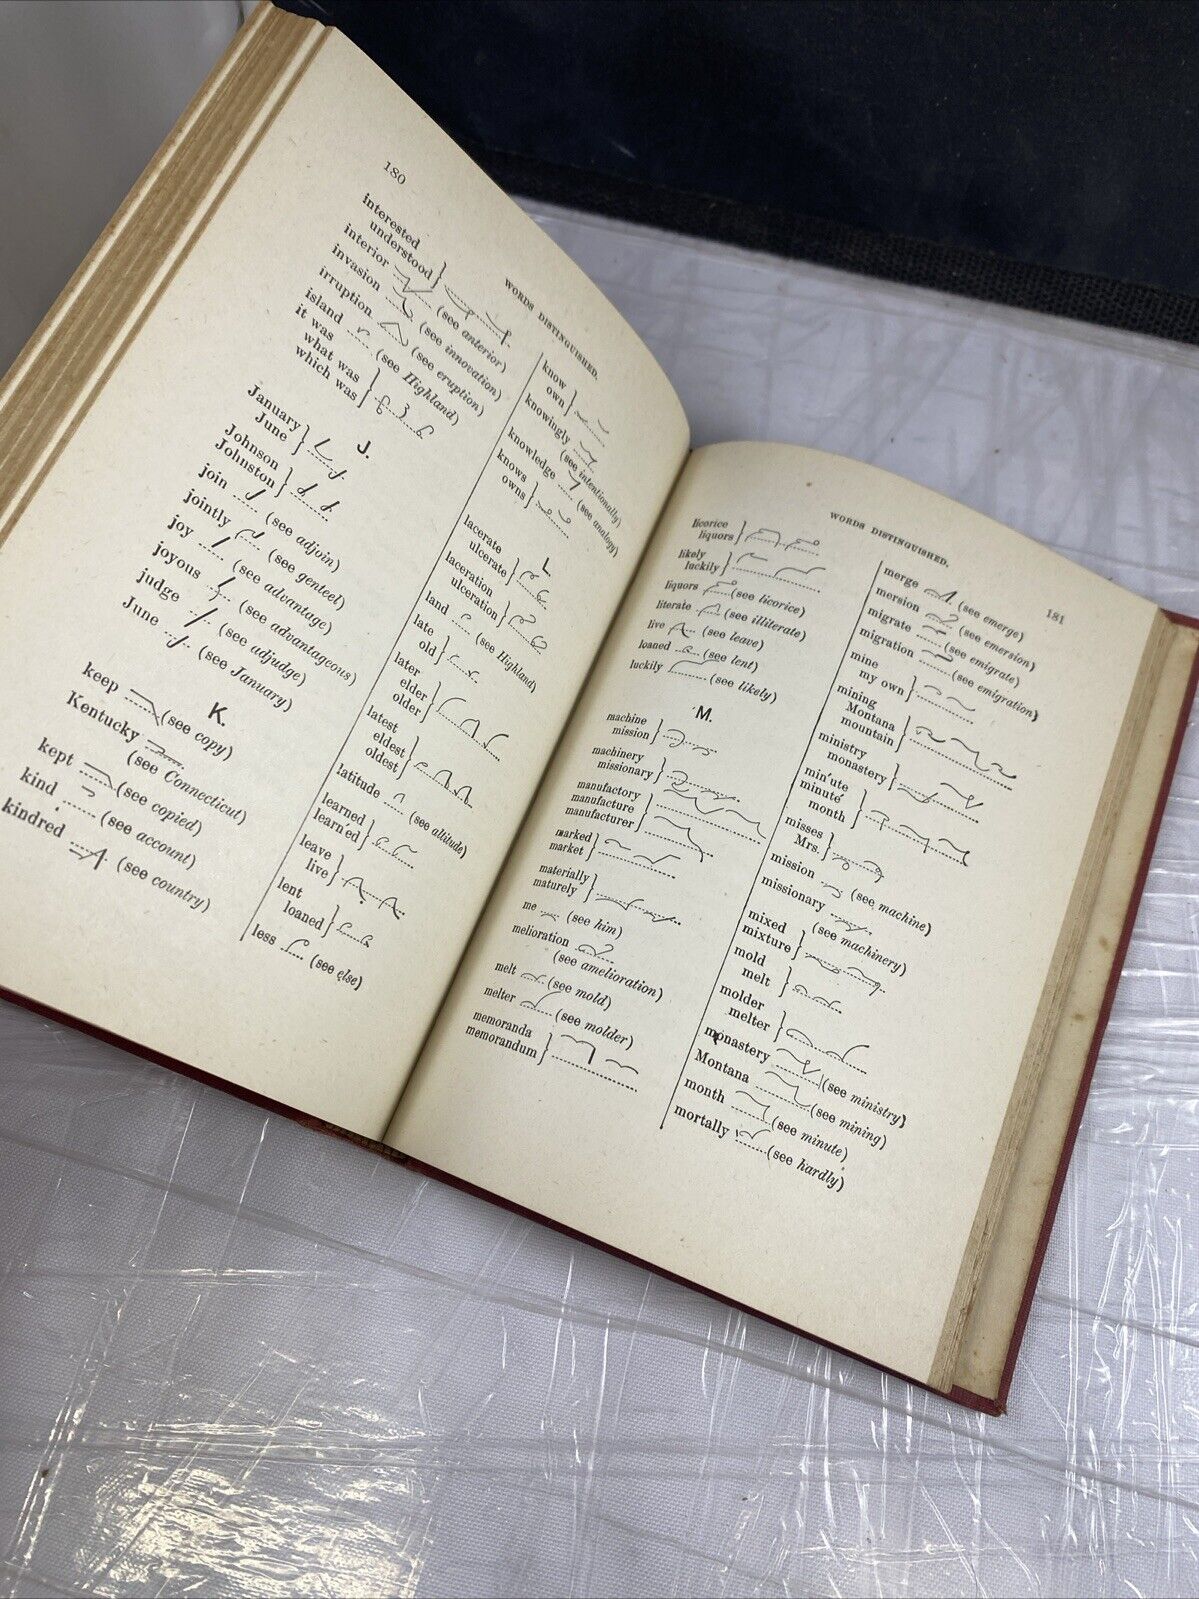 180
WORDS DISTINGUISHED.
interested
understood
interior (see anterior)
invasion (see innovation)
irruption (see eruption)
island (see Highland)
it was
what was
which was
J.
January
June
Johnson
Johnston
join (see adjoin)
jointly (see genteel)
joy (see advantage)
joyous (see advantageous)
judge (see adjudge)
June (see January)
K.
keep (see copy)
Kentucky
(see Connecticut)
kept (see copied)
kind (see account)
kindred (see country)
know
own
knowingly
(see intentionally)
knowledge (see analogy)
knows
owns
L
lacerate
ulcerate
laceration
ulceration
land (see Highland)
late
old
later
elder
older
latest
eldest
oldest
latitude (see altitude)
learned
learn'ed
leave
live
lent
loaned
less (see else)
WORDS DISTINGUISHED.
181
licorice
liquors
likely
luckily
liquors (see licorice)
literate (see illiterate)
live (see leave)
loaned (see lent)
luckily (see likely)
M.
machine
mission
machinery
missionary
manufactory
manufacture
manufacturer
marked
market
materially
maturely
me (see him)
melioration
(see amelioration)
melt (see mold)
melter (see molder)
memoranda
memorandum
merge (see emerge)
mersion (see emersion)
migrate (see emigrate)
migration (see emigration)
mine
my own
mining
Montana
mountain
ministry
monastery
min'ute
minute'
month
misses
Mrs.
mission (see machine)
missionary
(see machinery)
mixed
mixture
mold
melt
molder
melter
monastery (see ministry)
Montana (see mining)
month (see minute)
mortally (see hardly)